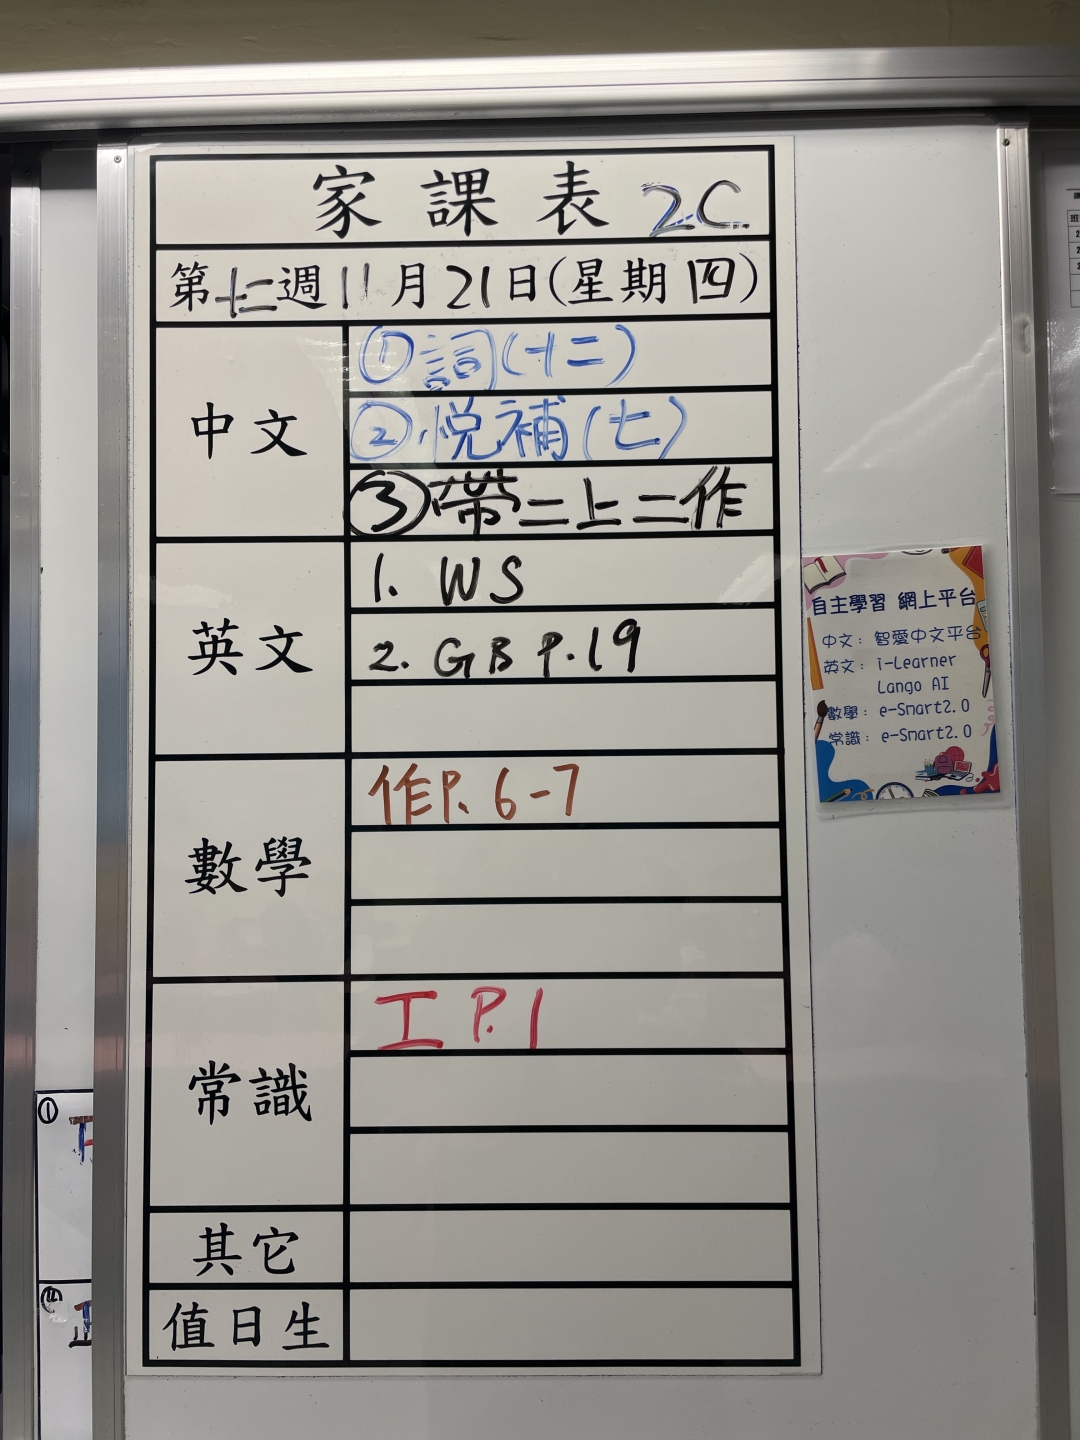 家課表 2C
第十二週11月21日(星期四)
中文
①詞(十二)
②悅補(七)
③帶二上二作
英文
1. WS
2. GB P.19
數學
作P. 6-7
常識
工 P.1
其它
值日生
自主學習 網上平台
中文：智愛中文平台
英文：i-Learner
Lango AI
數學：e-Smart2.0
常識：e-Smart2.0
①